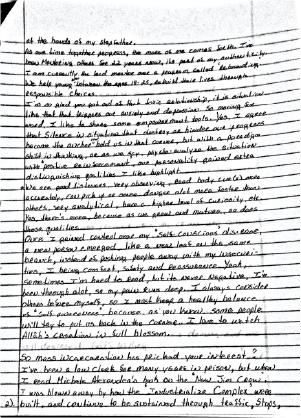 at the hands of my stepfather.
As our time together progress, the more of me comes forth. I've
been Mentoring others for 22 years now, its part of my
I am currently the lead mentor over a program called
We help young between the ages 18-25, rebuild their lives through
responsible choices.
I'm so glad you got out of that toxic relationship, it is situation
like that that triggers our anxiety and depression. So moving for-
ward, I like to share some empowerment tools. Yes, I agree
that silence in situations that
become the anchor hold us in that corner, but with a paradigm
shift in thinking, or as we say, psycho analyze the situation
with positive reinforcement, our personality gained extra
distinguishing qualities I like highlight.
We are good listeners, very observing, read body cues more
accurately, can pick up on danger alot more faster than
others, very analytical, have a higher level of curiosity, etc.
Yes, there's more, because as we grow and mature, so does
those qualities.
Once I gained control over my "Self Conscious" disease,
a new person emerged, like a new leaf on the same
branch, instead of pushing people away with my insecuri-
ties, I bring comfort, safety and reassurance. Yeah,
sometimes I'm hard to read, but its never negative, I've
been through alot, so my pain runs deep. I always consider
others before myself, so I must keep a healthy balance
of "Self awareness" because, as you know, some people
will try to put us back in the corner. I love to watch
Allah's creation in full blossom.
So mass incarceration has pricked your interest?
I've been a law clerk for many years in prison, but when
I read Michelle Alexandra's book on the "New Jim Crow"
I was blown away by how the Industrialize Complex were
2). built, and continue to be sustained through traffic stops,